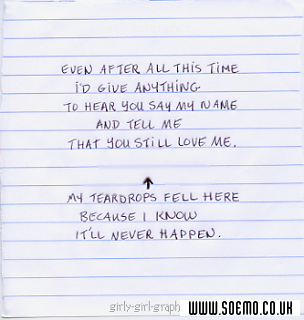 EVEN AFTER ALL THIS TIME
I'D GIVE ANYTHING
TO HEAR YOU SAY MY NAME
AND TELL ME
THAT YOU STILL LOVE ME.
MY TEARDROPS FELL HERE
BECAUSE I KNOW
IT'LL NEVER HAPPEN.
girly-girl-graph
WWW.SOEMO.CO.UK